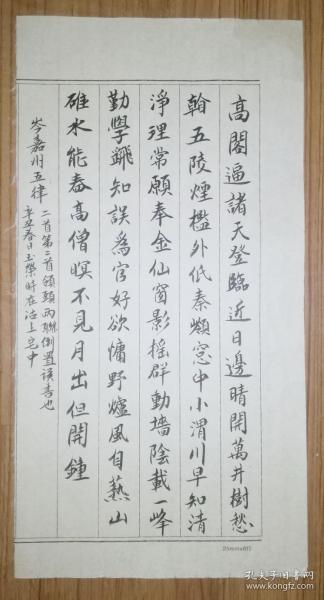 高閣逼諸天登臨近日邊晴開萬井樹愁
看五陵煙檻外低秦嶺窓中小渭川早知清
淨理常願奉金仙窗影搖群動墻陰載一峰
勤學翻知誤爲官好欲慵野爐風自爇山
碓水能舂高僧暝不見月出但聞鐘
岑嘉州五律
二首第二首頷頸兩聯倒置誤書也
辛丑春日玉榮時在沽上宅中
孔夫子旧书网